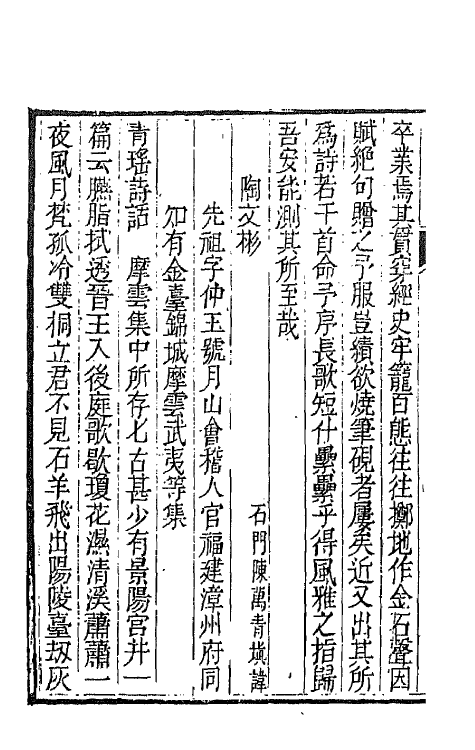 卒業焉其貫穿經史牢籠百態往往擲地作金石聲因
賦絕句贈之予服豈績欲燒筆硯者屢矣近又出其所
爲詩若干首命予序長歌短什纍纍乎得風雅之指歸
吾安能測其所至哉
陶文彬
石門陳萬青塡諱
先祖字仲玉號月山會稽人官福建漳州府同
知有金臺錦城摩雲武夷等集
青瑤詩話　摩雲集中所存七古甚少有景陽宮井一
篇云臙脂拭透晉王入後庭歌歇瓊花濕清溪蕭蕭一
夜風月梵孤冷雙桐立君不見石羊飛出陽陵臺刼灰